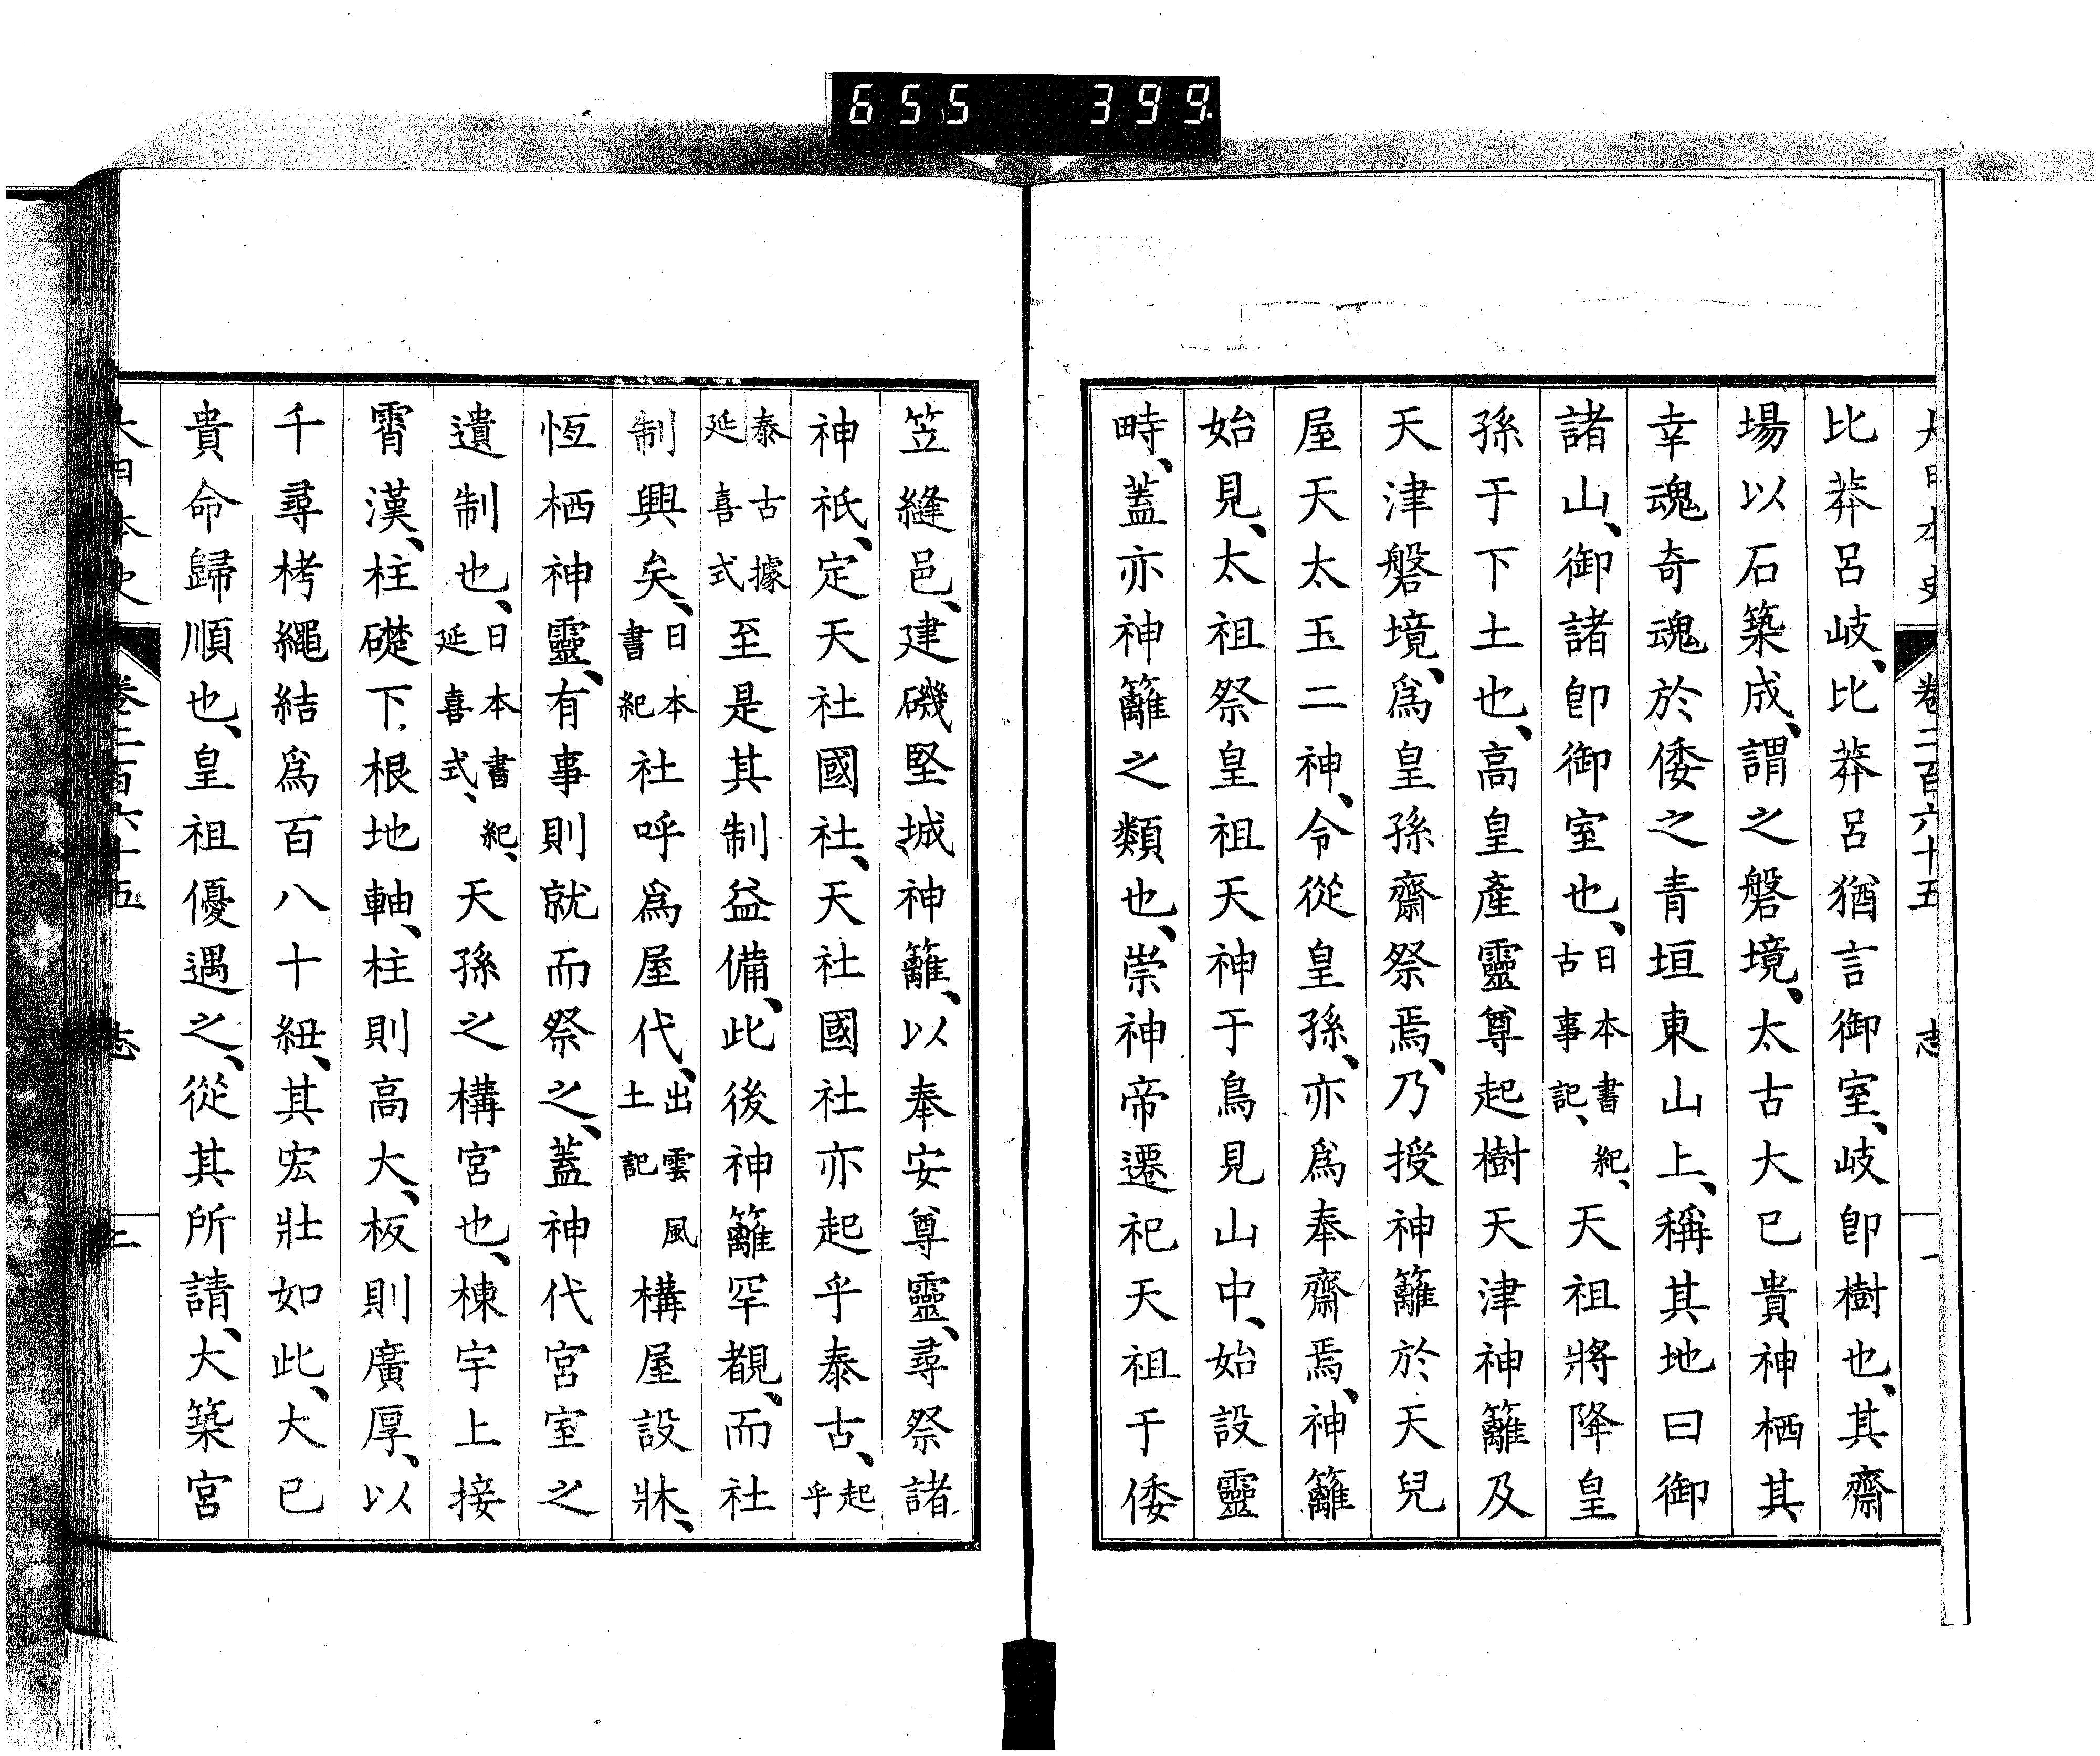 655 399.
大日本史 卷二百六十五 志 一
比莽呂岐、比莽呂猶言御室、岐卽樹也、其齋
場以石築成、謂之磐境、太古大已貴神栖其
幸魂奇魂於倭之青垣東山上、稱其地曰御
諸山、御諸卽御室也、日本書紀、古事記、天祖將降皇
孫于下土也、高皇產靈尊起樹天津神籬及
天津磐境、爲皇孫齋祭焉、乃授神籬於天兒
屋天太玉二神、令從皇孫、亦爲奉齋焉、神籬
始見、太祖祭皇祖天神于鳥見山中、始設靈
畤、蓋亦神籬之類也、崇神帝遷祀天祖于倭
笠縫邑、建磯堅城神籬、以奉安尊靈、尋祭諸
神祇、定天社國社、天社國社亦起乎泰古、起乎
泰古據延喜式至是其制益備、此後神籬罕覩、而社
制興矣、日本書紀社呼爲屋代、出雲風土記構屋設牀、
恆栖神靈、有事則就而祭之、蓋神代宮室之
遺制也、日本書紀、延喜式、天孫之構宮也、棟宇上接
霄漢、柱礎下根地軸、柱則高大、板則廣厚、以
千尋栲繩結爲百八十紐、其宏壯如此、大已
貴命歸順也、皇祖優遇之、從其所請、大築宮
大日本史 卷二百六十五 志 二